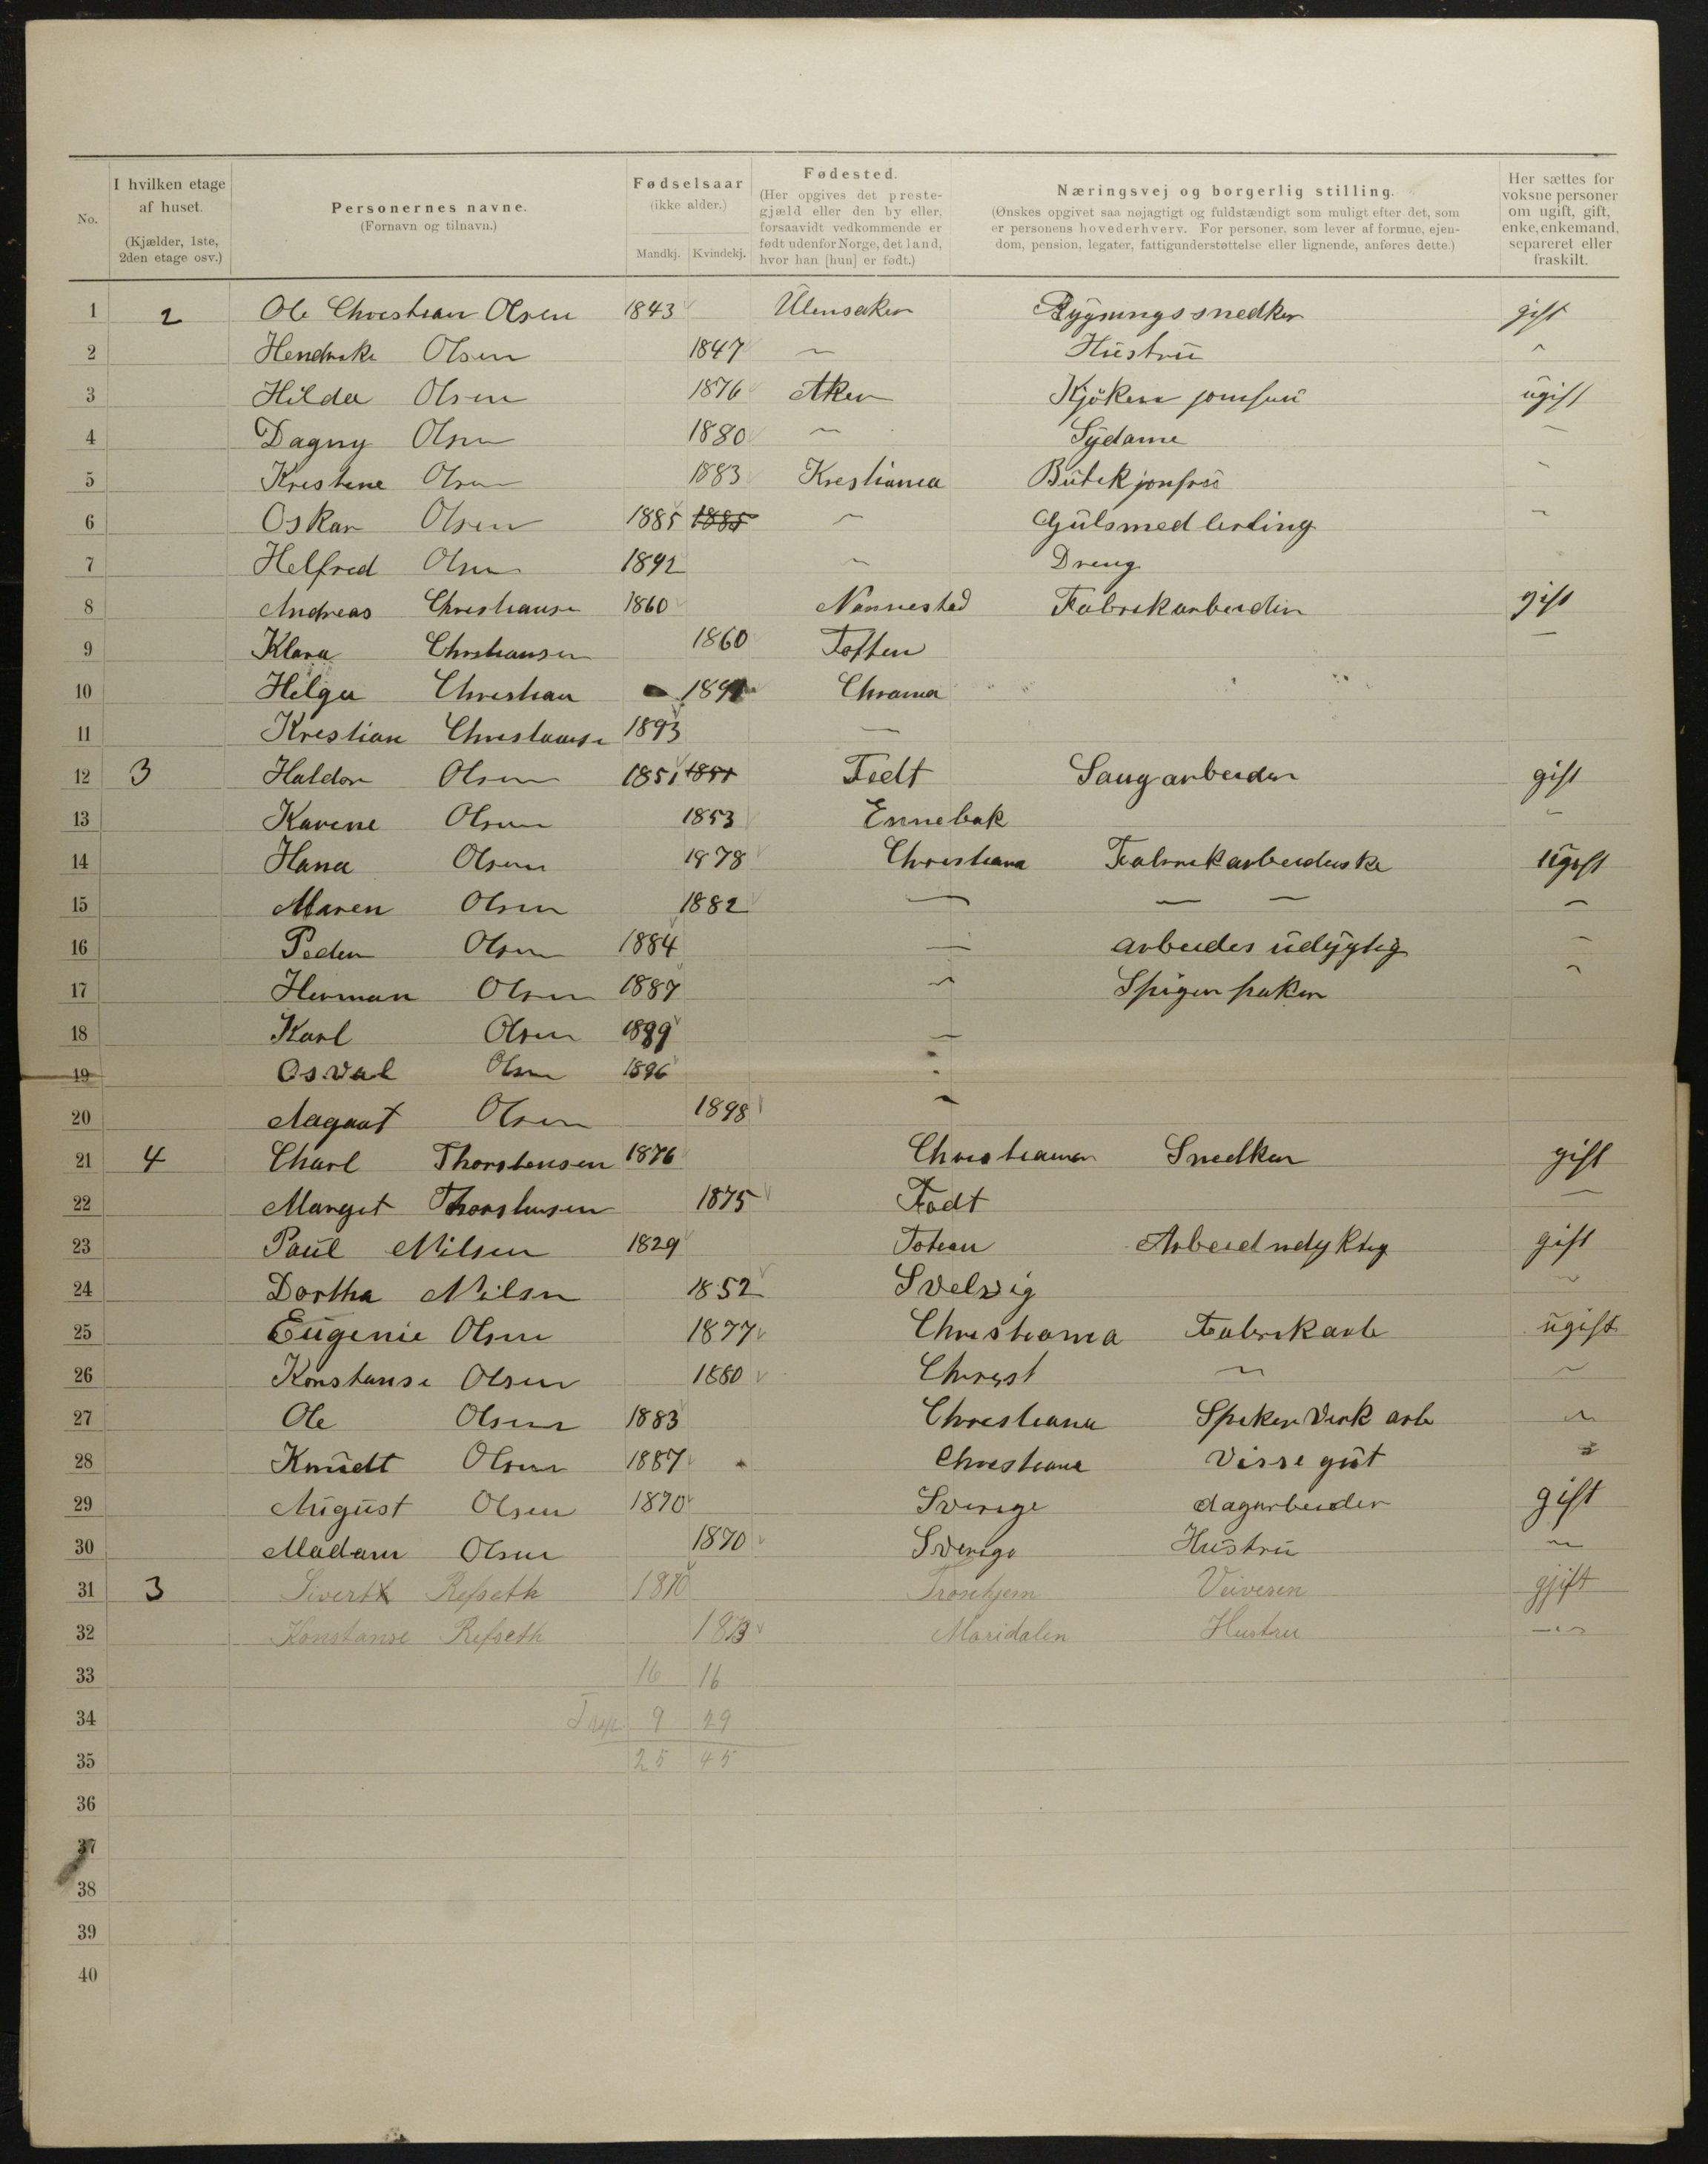 No. I hvilken etage af huset. (Kjælder, 1ste, 2den etage osv.) Personernes navne. (Fornavn og tilnavn.) Fødselsaar (ikke alder.) Mandkj. Kvindekj. Fødested. (Her opgives det prestegjæld eller den by eller, forsaavidt vedkommende er født udenfor Norge, det land, hvor han [hun] er født.) Næringsvej og borgerlig stilling. (Ønskes opgivet saa nøjagtigt og fuldstændigt som muligt efter det, som er personens hovederhverv. For personer, som lever af formue, ejendom, pension, legater, fattigunderstøttelse eller lignende, anføres dette.) Her sættes for voksne personer om ugift, gift, enke, enkemand, separeret eller fraskilt.
1 2 Ole Christian Olsen 1843 Ulensaker Bygningssnedker gift
2 Hendrike Olsen 1847 — Hustru —
3 Hilda Olsen 1876 Aker Kjøken jomfru ugift
4 Dagny Olsen 1880 — Sydame —
5 Kristine Olsen 1883 Krestiania Butekjonfru —
6 Oskar Olsen 1885 1885 — Gulsmed lerling —
7 Helfred Olsen 1892 — Dreng
8 Andreas Christiansen 1860 Nannestad Fabrikarbeider gift
9 Klara Christiansen 1860 Totten —
10 Helga Christian 1891 Chrania
11 Kristian Christianse 1893 —
12 3 Haldor Olsen 1851 1851 Fedt Saugarbeider gift
13 Karene Olsen 1853 Ennebak —
14 Hana Olsen 1878 Christiana Fabrikarbeiderske ugift
15 Maren Olsen 1882 — — — —
16 Peder Olsen 1884 — arbeides udygtig —
17 Herman Olsen 1887 — Spigerpaker —
18 Karl Olsen 1889 —
19 Osval Olsen 1896
20 Aagaat Olsen 1898 —
21 4 Charl Thorstensen 1876 Christiania Snedker gift
22 Margit Thorstensen 1875 Født —
23 Paul Nilsen 1829 Toten Arbeidudyktig gift
24 Dortha Nilsen 1852 Svelvig —
25 Eugenie Olsen 1877 Christiania Fabrikarb ugift
26 Konstanse Olsen 1880 Christ — —
27 Ole Olsen 1883 Christiana Spikerverk arb —
28 Knudt Olsen 1887 Christiana Visse gut
29 August Olsen 1870 Sverige dagarbeider gift
30 Madam Olsen 1870 Sverige Hustru —
31 3 Sivert Refseth 1870 Trondhjem Veivesen gjift
32 Konstanse Refseth 1873 Maridalen Hustru —
33 16 16
34 Trsp 9 29
35 25 45
36
37
38
39
40